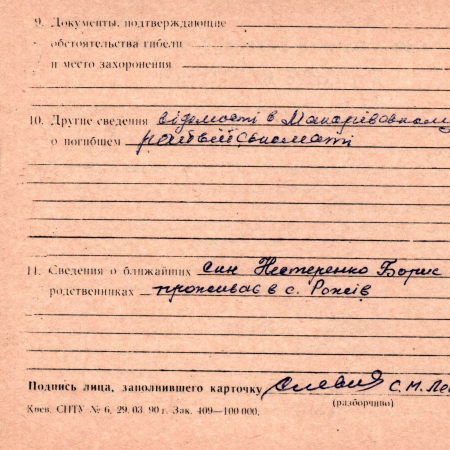 9. Документы, подтверждающие
обстоятельства гибели
и место захоронения
10. Другие сведения відомості в Макарівському
о погибшем райвійськоматі
11. Сведения о ближайших син Нестеренко Борис
родственниках проживає в с. Рожів
Подпись лица, заполнившего карточку С.М.
(разборчиво)
Киев. СНТУ № 6, 29. 03. 90 г. Зак. 409—100 000.